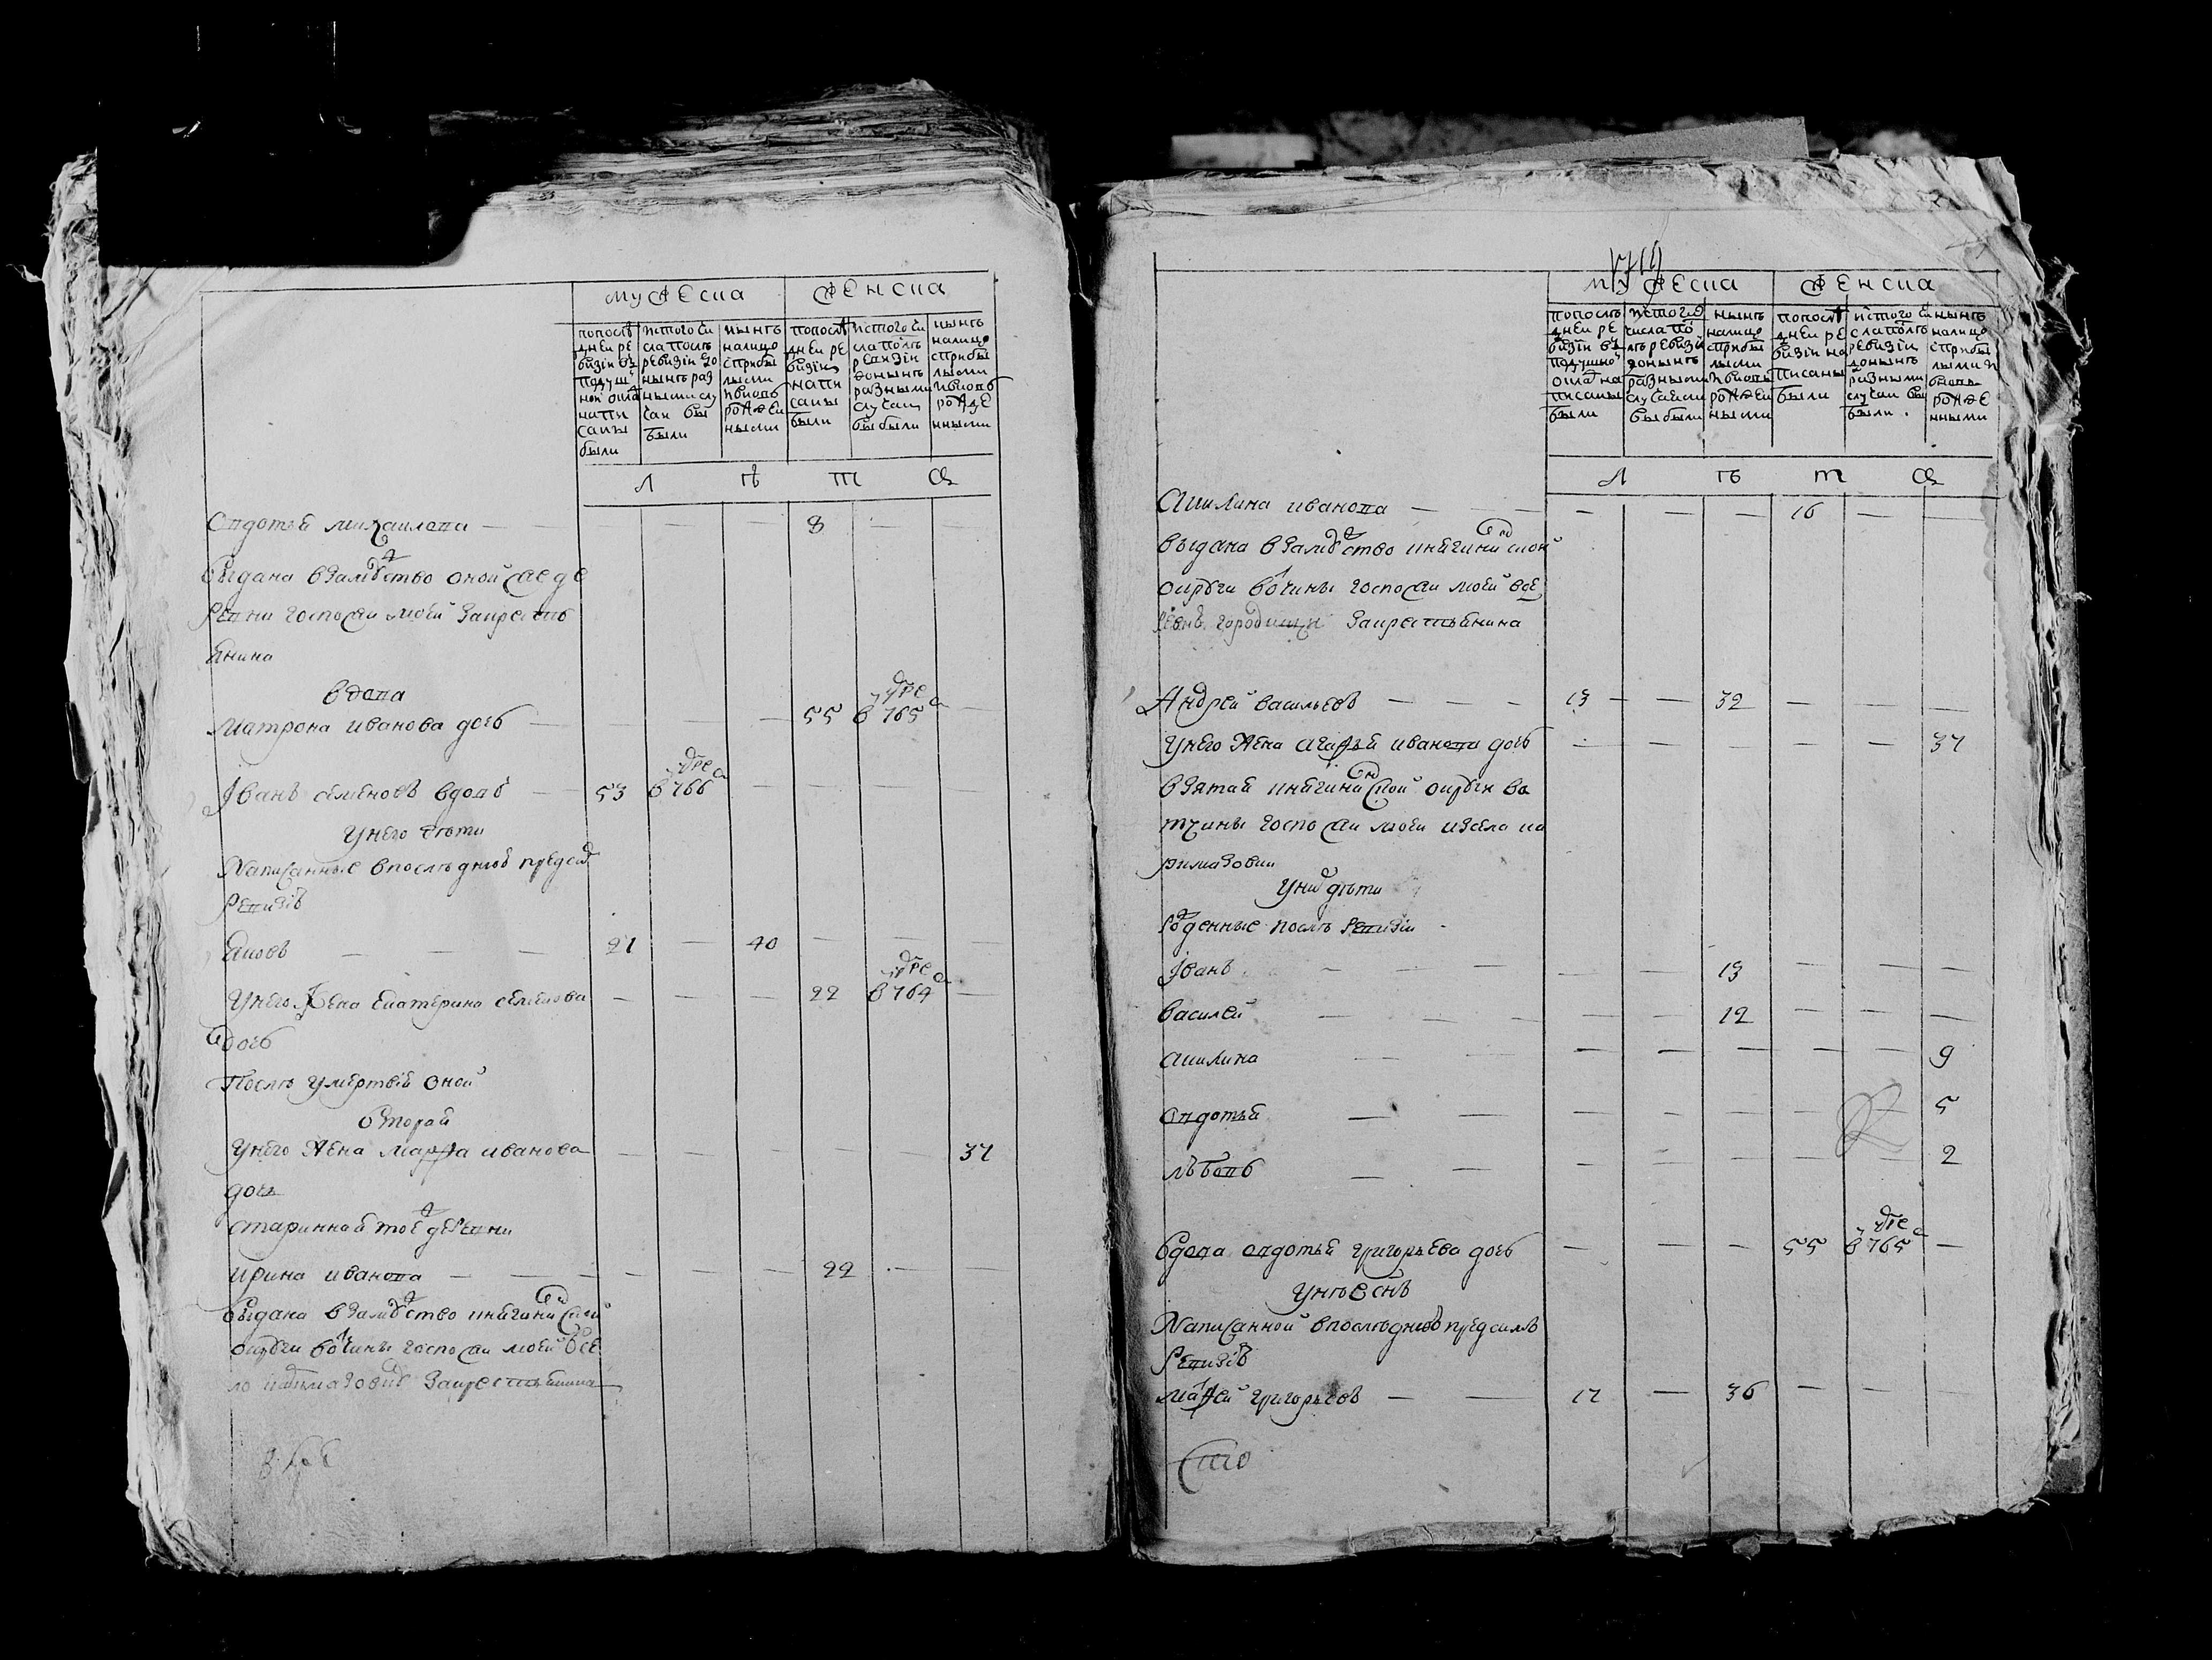 мужеска женска
попослѣ
днеи ре
визіи въ
подуш
ной окла
напи
саны
были
исътого чи
сла послѣ
ревизіи до
нынѣ раз
ными слу
чаи вы
были
нынѣ
налицо
сприбы
лыми
ивновь
рожден
ными
попослѣ
днеи ре
визіи
напи
саны
были
исътого чи
сла послѣ
ревизіи
донынѣ
разными
случаи
выбыли
нынѣ
налицо
сприбы
лыми
ивновь
рожде
нными
Л ѣ т ъ
Овдотья михаилова — — — — 8 —
выдана взамужство оной же де
ревни господи моей закрестья
янина
вдова
Матрона иванова дочь — — — — 55 в 765 —
Іванъ семеновъ вдовъ — 53 в 766 — — — —
унего дети
написанные впоследней пред сей
ревизіи
Яковъ — — — 21 — 40 — — —
унего жена екатерина семенова — — — 22 в 764 —
дочь
После умертвіи оной
вторая
унего жена марфа иванова — — — — — 37
дочь
старинная тоеж деревни
ирина иванова — — — — — 22 — —
выдана взамужство княгининской
округи вотчины господи моей всѣ
ло закрестьянина
мужеска женска
попослѣ
днеи ре
визіи въ
подушно
окла на
писаны
были
исътого
числа по
слѣ ревизіи
донынѣ
разными
случаями
выбыли
нынѣ
налицо
сприбы
лыми
ивновь
рожден
ными
попослѣ
днеи ре
визіи на
писаны
были
исътого чи
сла послѣ
ревизіи
донынѣ
разными
случаи вы
были
нынѣ
налицо
сприбы
лыми и
вновь
рожде
нными
Л ѣ т ъ
Акилина иванова — — — — — 16 — —
выдана взамужство княгининской
округи вотчины господи моей вде
ревнѣ городищи закрестьянина
Андрей васильевъ — — — 13 — 32 — — —
унего жена агафья иванова дочь — — — — — 37
взятая княгининской округи во
тчины господи моей изсела ка
рмазовки
уних дѣти
рожденные послѣ ревизіи
Іванъ — — — — — 13 — — —
василей — — — — — 12 — — —
акилина — — — — — — — 9
овдотья — — — — — — — 5
любовь — — — — — — — 2
вдова овдотья григорьева дочь — — — 55 в 765 —
унеѣ сынъ
написанной впоследней пред симъ
ревизіи
матфей григорьевъ — — 17 — 36 — —